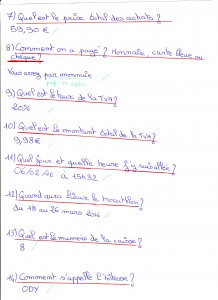 7) Quel est le prix total des achats ?
59,90 €
8) Comment on a payé ? Monnaie, carte bleue ou
chèque ?
Vous avez par monnaie
9) Quel est le taux de la TVA ?
20%
10) Quel est le montant total de la TVA ?
9,98€
11) Quel jour et quelle heure j'y suis allée ?
06/02/16 à 15h32
12) Quand aura lieu le trocathlon ?
du 18 au 26 mars 2016
13) Quel est le numéro de la caisse ?
8
14) Comment s'appelle l'hôtesse ?
ODY